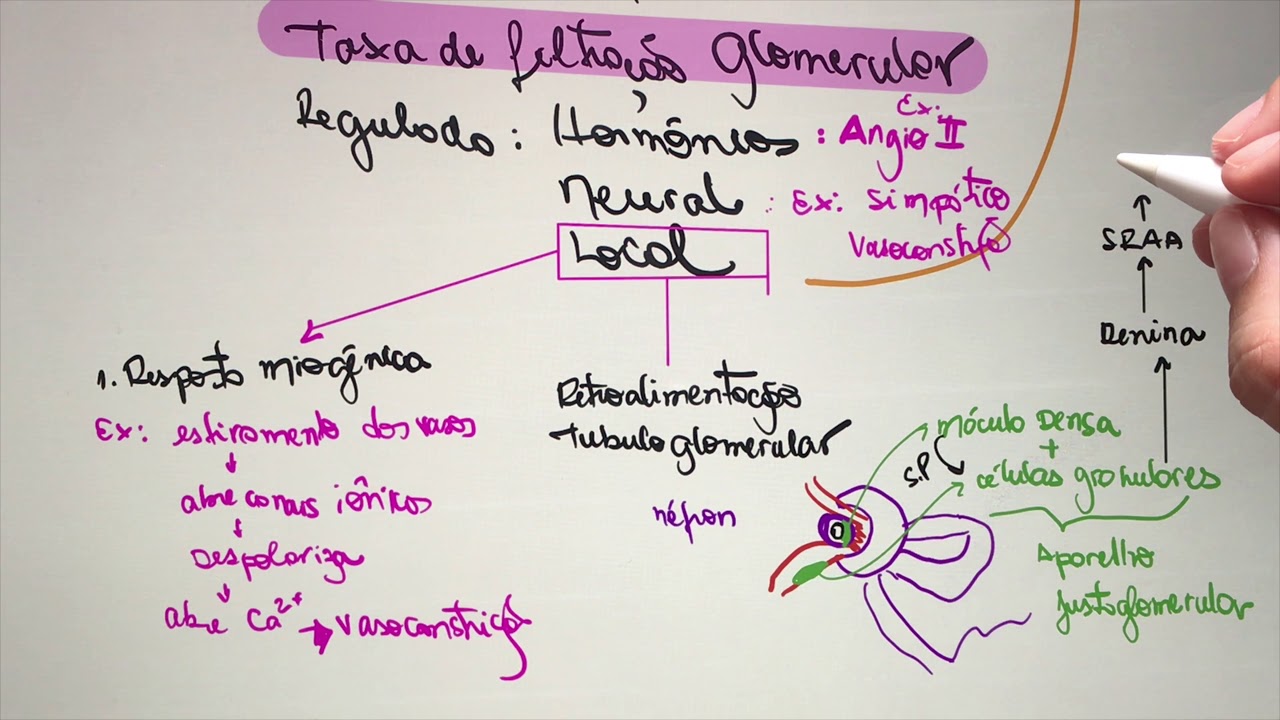 Taxa de filtração Glomerular
Regulado: Hormônios: Ex: Angio II
Neural: Ex: Simpático
Vasoconstrição
Local
SRAA
Renina
1. Resposta miogênica
Ex: estiramento dos vasos
abre canais iônicos
Despolariza
abre Ca²⁺ → vasoconstrição
Retroalimentação
tubuloglomerular
néfron
mácula Densa
+
S.P
células granulares
Aparelho
justaglomerular